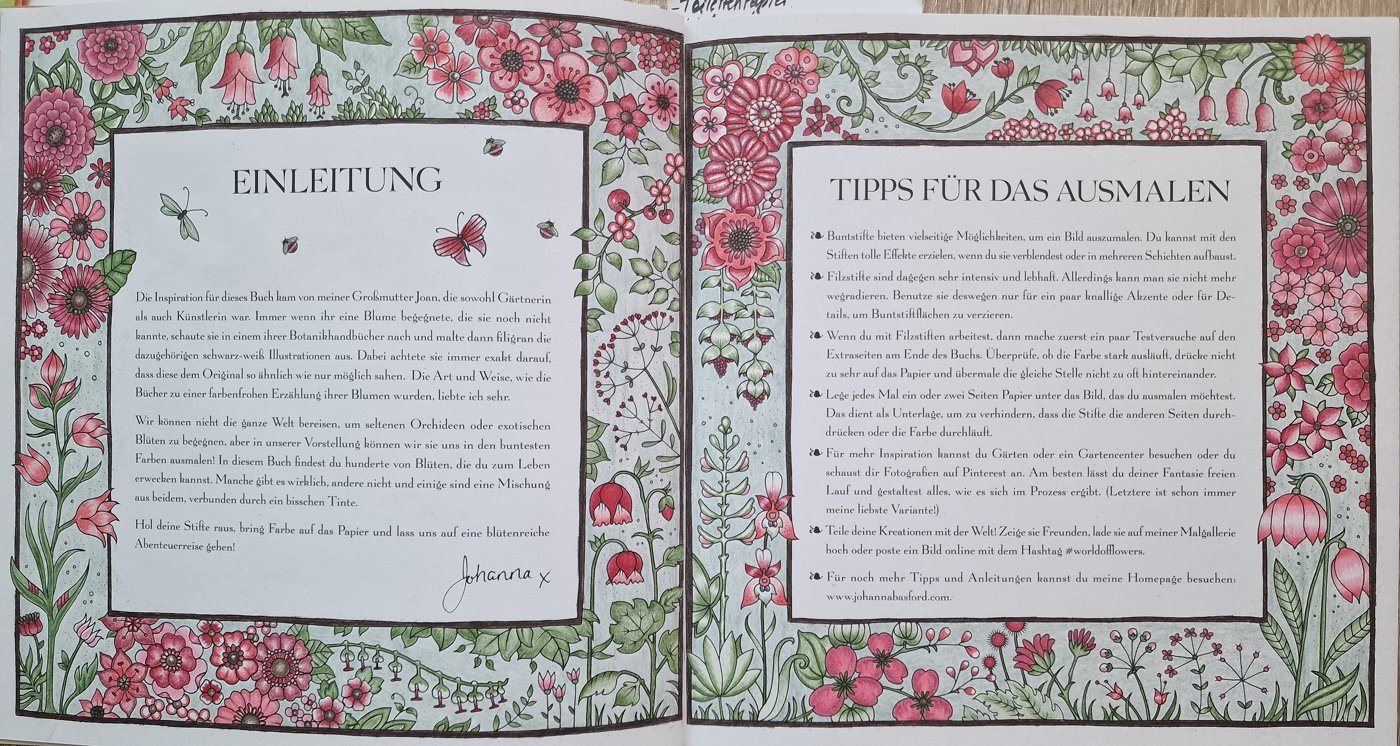 -Toilettenpapier
EINLEITUNG
Die Inspiration für dieses Buch kam von meiner Großmutter Joan, die sowohl Gärtnerin
als auch Künstlerin war. Immer wenn ihr eine Blume begegnete, die sie noch nicht
kannte, schaute sie in einem ihrer Botanikhandbücher nach und malte dann filigran die
dazugehörigen schwarz-weiß Illustrationen aus. Dabei achtete sie immer exakt darauf,
dass diese dem Original so ähnlich wie nur möglich sahen. Die Art und Weise, wie die
Bücher zu einer farbenfrohen Erzählung ihrer Blumen wurden, liebte ich sehr.
Wir können nicht die ganze Welt bereisen, um seltenen Orchideen oder exotischen
Blüten zu begegnen, aber in unserer Vorstellung können wir sie uns in den buntesten
Farben ausmalen! In diesem Buch findest du hunderte von Blüten, die du zum Leben
erwecken kannst. Manche gibt es wirklich, andere nicht und einige sind eine Mischung
aus beidem, verbunden durch ein bisschen Tinte.
Hol deine Stifte raus, bring Farbe auf das Papier und lass uns auf eine blütenreiche
Abenteuerreise gehen!
Johanna x
TIPPS FÜR DAS AUSMALEN
Buntstifte bieten vielseitige Möglichkeiten, um ein Bild auszumalen. Du kannst mit den
Stiften tolle Effekte erzielen, wenn du sie verblendest oder in mehreren Schichten aufbaust.
Filzstifte sind dagegen sehr intensiv und lebhaft. Allerdings kann man sie nicht mehr
wegradieren. Benutze sie deswegen nur für ein paar knallige Akzente oder für De-
tails, um Buntstiftflächen zu verzieren.
Wenn du mit Filzstiften arbeitest, dann mache zuerst ein paar Testversuche auf den
Extraseiten am Ende des Buchs. Überprüfe, ob die Farbe stark ausläuft, drücke nicht
zu sehr auf das Papier und übermale die gleiche Stelle nicht zu oft hintereinander.
Lege jedes Mal ein oder zwei Seiten Papier unter das Bild, das du ausmalen möchtest.
Das dient als Unterlage, um zu verhindern, dass die Stifte die anderen Seiten durch-
drücken oder die Farbe durchläuft.
Für mehr Inspiration kannst du Gärten oder ein Gartencenter besuchen oder du
schaust dir Fotografien auf Pinterest an. Am besten lässt du deiner Fantasie freien
Lauf und gestaltest alles, wie es sich im Prozess ergibt. (Letztere ist schon immer
meine liebste Variante!)
Teile deine Kreationen mit der Welt! Zeige sie Freunden, lade sie auf meiner Malgallerie
hoch oder poste ein Bild online mit dem Hashtag #worldofflowers.
Für noch mehr Tipps und Anleitungen kannst du meine Homepage besuchen:
www.johannabasford.com.